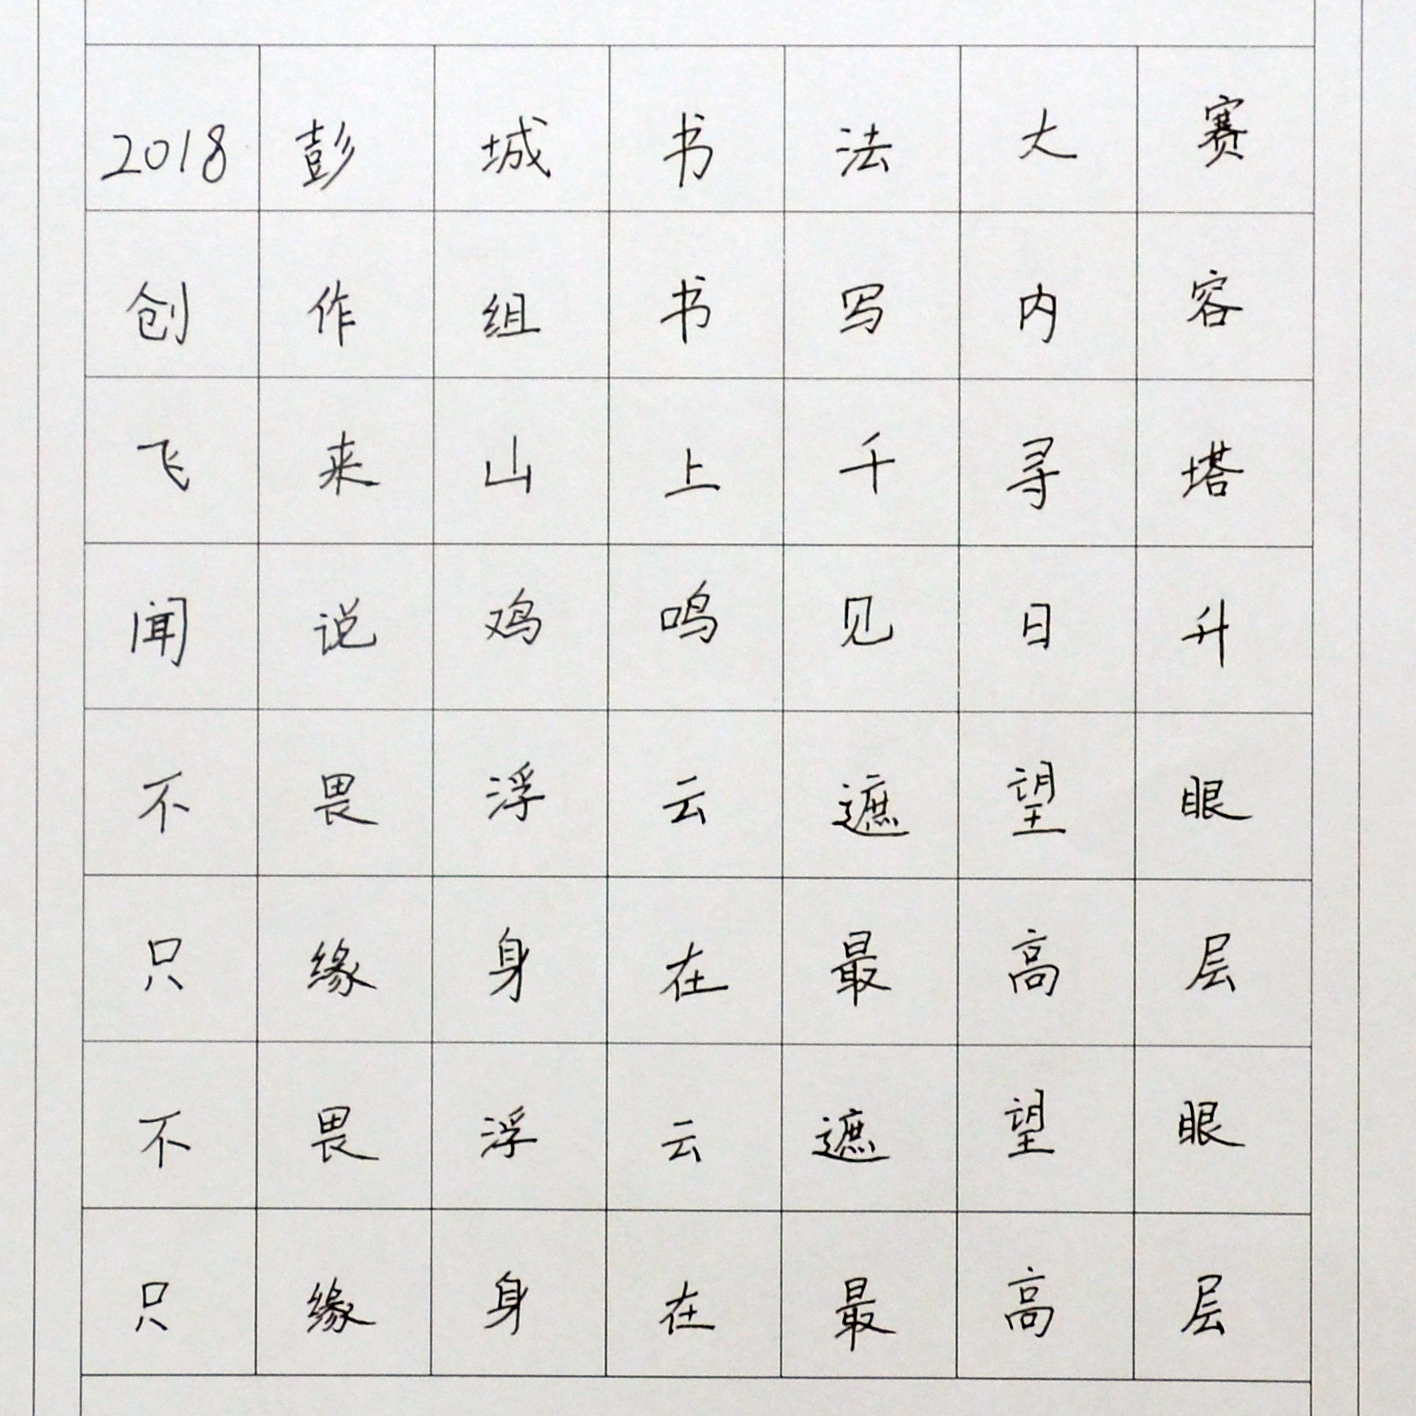 2018彭城书法大赛
创作组书写内容
飞来山上千寻塔
闻说鸡鸣见日升
不畏浮云遮望眼
只缘身在最高层
不畏浮云遮望眼
只缘身在最高层